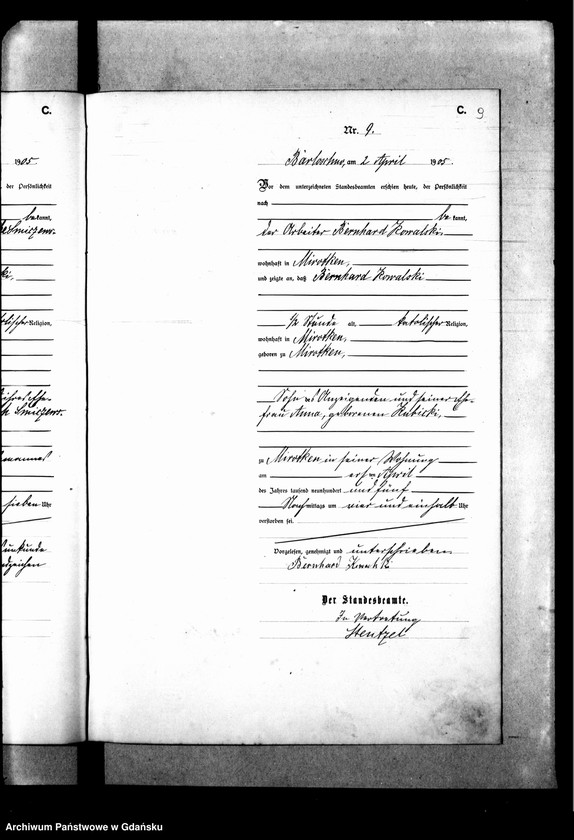 C.
1905
der Persönlichkeit
bekannt,
Religion,
sieben Uhr
C. 9
Nr. 9.
Barloschno, am 2 April 1905.
Vor dem unterzeichneten Standesbeamten erschien heute, der Persönlichkeit
nach
bekannt,
der Arbeiter Bernhard Kowalski,
wohnhaft in Mirotken,
und zeigte an, daß Bernhard Kowalski
1/2 Stunde alt, katolischer Religion,
wohnhaft in Mirotken,
geboren zu Mirotken,
Sohn des Anzeigenden und seiner Ehe-
frau Anna, geborenen Kubicki,
zu Mirotken in seiner Wohnung
am ersten April
des Jahres tausend neunhundert und fünf
Nachmittags um vier und einhalb Uhr
verstorben sei.
Vorgelesen, genehmigt und unterschrieben
Bernhard
Der Standesbeamte.
In Vertretung
Stentzel
Archiwum Państwowe w Gdańsku